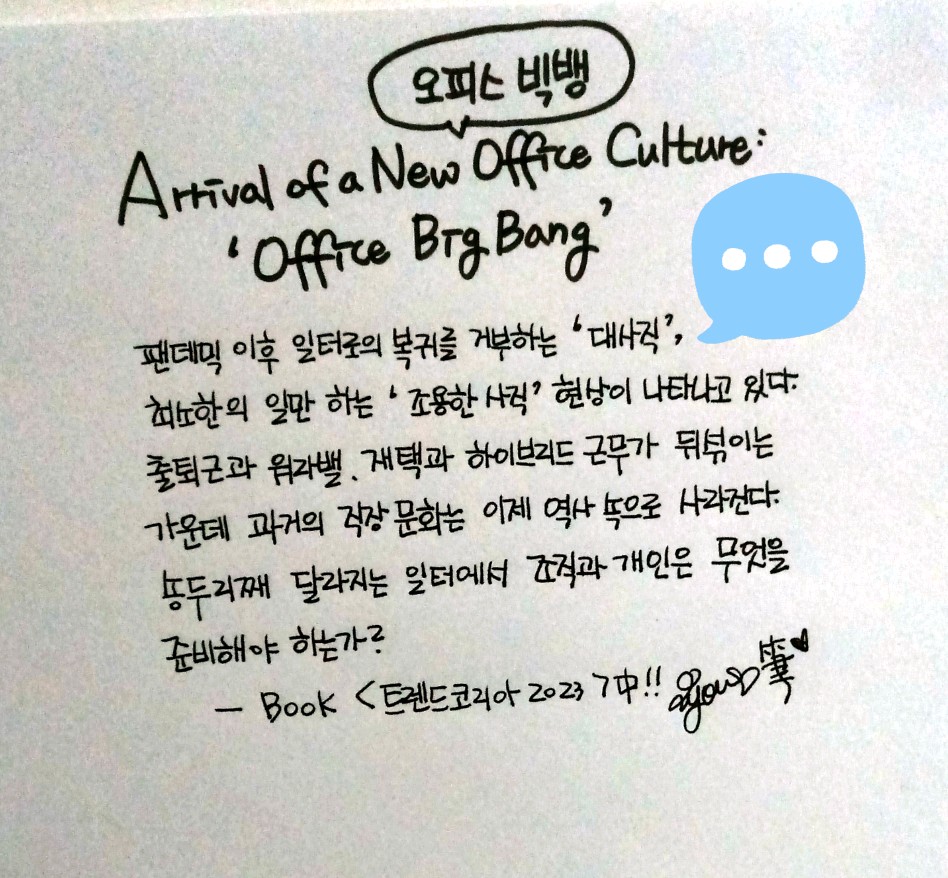 오피스 빅뱅
Arrival of a New Office Culture:
'Office Big Bang'
팬데믹 이후 일터로의 복귀를 거부하는 '대사직',
최소한의 일만 하는 '조용한 사직' 현상이 나타나고 있다.
출퇴근과 워라밸, 재택과 하이브리드 근무가 뒤섞이는
가운데 과거의 직장 문화는 이제 역사 속으로 사라진다.
송두리째 달라지는 일터에서 조직과 개인은 무엇을
준비해야 하는가?
- Book <트렌드코리아 2023 > 中!!